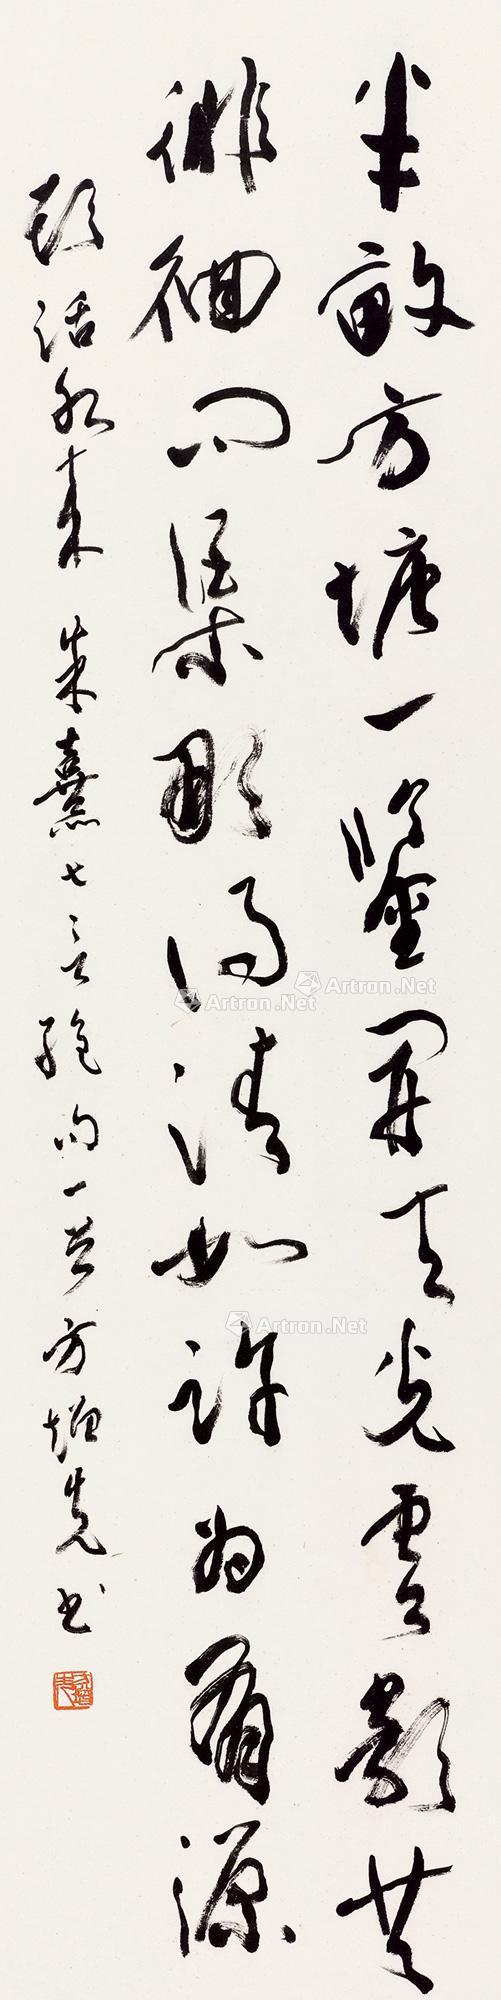 半畝方塘一鑒開天光雲影共
徘徊問渠那得清如許為有源
頭活水來 朱熹七言絕句一首 方增先書
Artron.Net
Artron.Net
Artron.Net